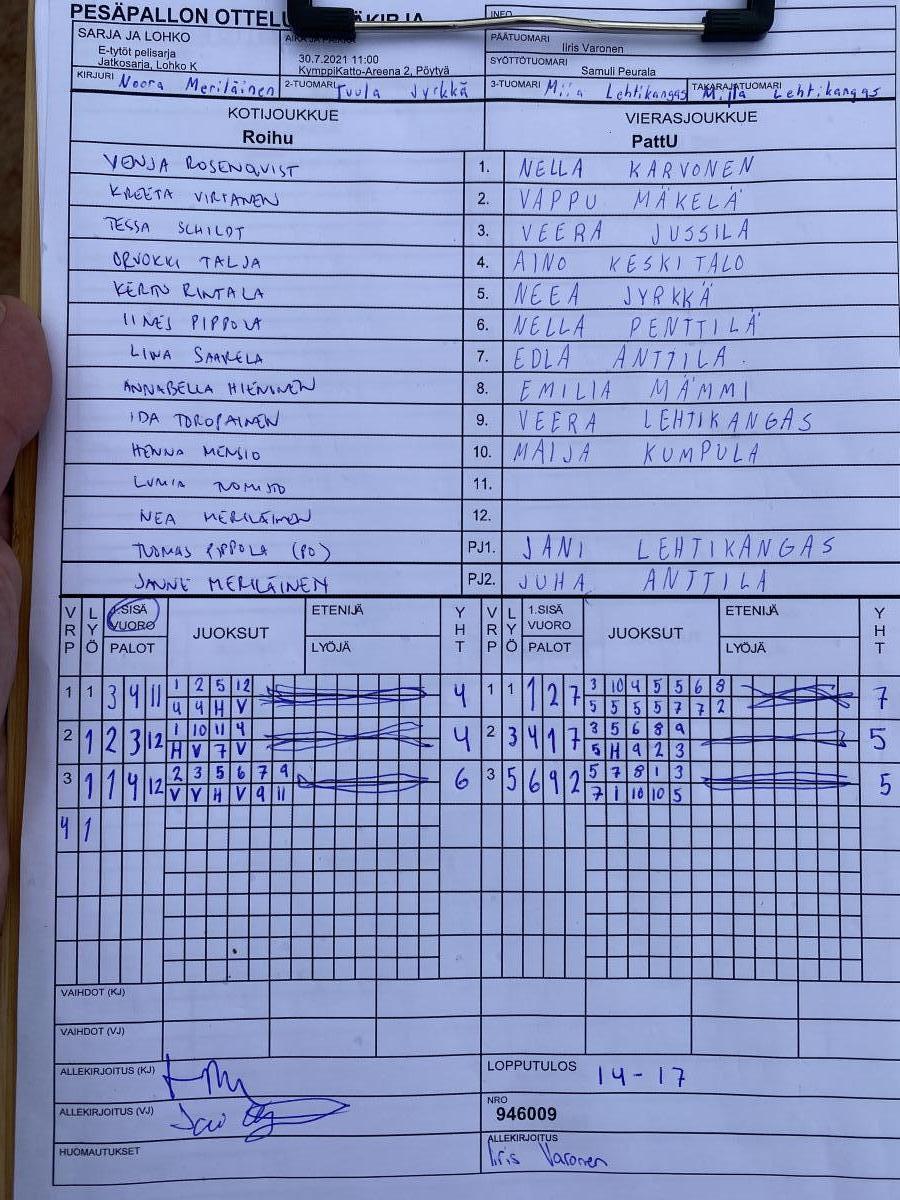 PESÄPALLON OTTELU
INFO
SARJA JA LOHKO
E-tytöt pelisarja
Jatkosarja, Lohko K
30.7.2021 11:00
KymppiKatto-Areena 2, Pöytyä
PÄÄTUOMARI
Iiris Varonen
SYÖTTÖTUOMARI
Samuli Peurala
KIRJURI Noora Meriläinen 2-TUOMARI Tuula Jyrkkä 3-TUOMARI Miia Lehtikangas TAKARAJATUOMARI Milja Lehtikangas
KOTIJOUKKUE VIERASJOUKKUE
Roihu PattU
VENJA ROSENQVIST 1. NELLA KARVONEN
KREETA VIRTANEN 2. VAPPU MÄKELÄ
TESSA SCHILDT 3. VEERA JUSSILA
ORVOKKI TALJA 4. AINO KESKITALO
KERTTU RINTALA 5. NEEA JYRKKÄ
IINES PIPPOLA 6. NELLA PENTTILÄ
LINA SAARELA 7. EDLA ANTTILA
ANNABELLA HIENINEN 8. EMILIA MÄMMI
IDA TOROPAINEN 9. VEERA LEHTIKANGAS
HENNA MENSIO 10. MAIJA KUMPULA
LUMIA TUOMISTO 11.
NEA MERILÄINEN 12.
TUOMAS PIPPOLA (PO) PJ1. JANI LEHTIKANGAS
JANNE MERILÄINEN PJ2. JUHA ANTTILA
VRP LYÖ 1.SISÄ VUORO PALOT JUOKSUT ETENIJÄ LYÖJÄ YHT VRP LYÖ 1.SISÄ VUORO PALOT JUOKSUT ETENIJÄ LYÖJÄ YHT
1 1 3 4 11 1 2 5 12 4 1 1 1 2 7 3 10 4 5 5 6 8 7
4 4 H V 5 5 5 5 7 7 2
2 1 2 3 12 1 10 11 4 4 2 3 4 1 7 3 5 6 8 9 5
H V 7 V 5 H 9 2 3
3 1 1 4 12 2 3 5 6 7 9 6 3 5 6 9 2 5 7 8 1 3 5
V V H V 9 11 7 1 10 10 5
4 1
VAIHDOT (KJ)
VAIHDOT (VJ)
ALLEKIRJOITUS (KJ) LOPPUTULOS 14-17
ALLEKIRJOITUS (VJ) NRO
946009
HUOMAUTUKSET ALLEKIRJOITUS
Iiris Varonen